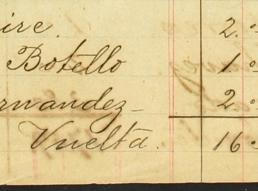 ire. 2.
Botello 1.
rnandez- 2.
Vuelta. 16